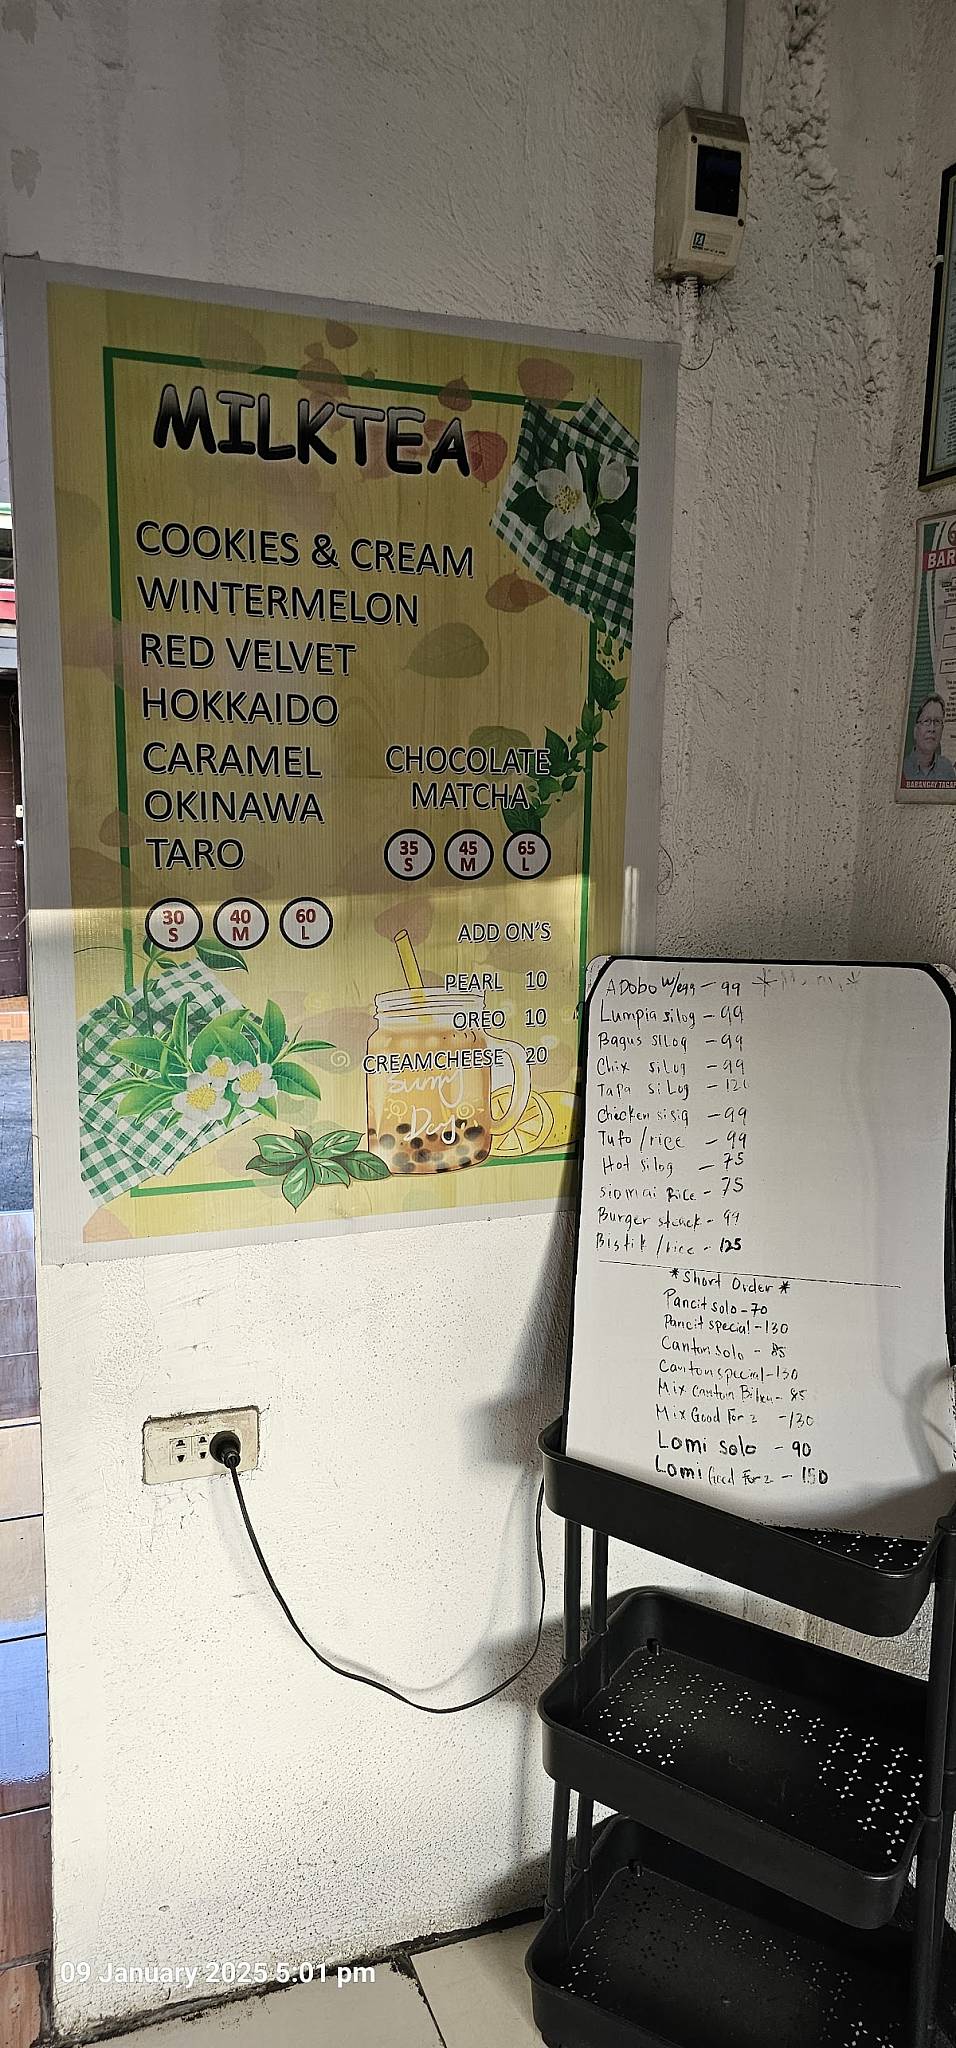 MILKTEA
COOKIES & CREAM
WINTERMELON
RED VELVET
HOKKAIDO
CARAMEL
OKINAWA
TARO
30 S 40 M 60 L
CHOCOLATE
MATCHA
35 S 45 M 65 L
ADD ON'S
PEARL 10
OREO 10
CREAMCHEESE 20
Sunny
Day
ADobo w/egg - 99
Lumpia silog - 99
Bagus silog - 99
Chix silog - 99
Tapa silog -
Checken sisig - 99
Tufo/rice - 99
Hot silog - 75
siomai Rice - 75
Burger steack - 99
Bistik/rice - 125
*Short Order*
Pancit solo - 70
Pancit special - 130
Canton solo - 85
Canton special - 130
Mix canton Bihon - 85
Mix Good For 2 - 130
Lomi solo - 90
Lomi Good For 2 - 150
BAR
BARANGAY
09 January 2025 5:01 pm